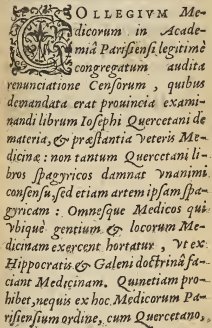 COLLEGIVM Me-
dicorum in Acade-
miâ Parisiensi legitimè
congregatum audita
renunciatione Censorum, quibus
demandata erat prouincia exami-
nandi librum Iosephi Quercetani de
materia, & præstantia veteris Me-
dicinæ: non tantum Quercetani li-
bros spagyricos damnat vnanimi
consensu, sed etiam artem ipsam spa-
gyricam: Omnesque Medicos qui
vbique gentium & locorum Me-
dicinam exercent hortatur, vt ex
Hippocratis & Galeni doctrinâ fa-
ciant Medicinam. Quinetiam pro-
hibet, nequis ex hoc Medicorum Pa-
risiensium ordine, cum Quercetano,